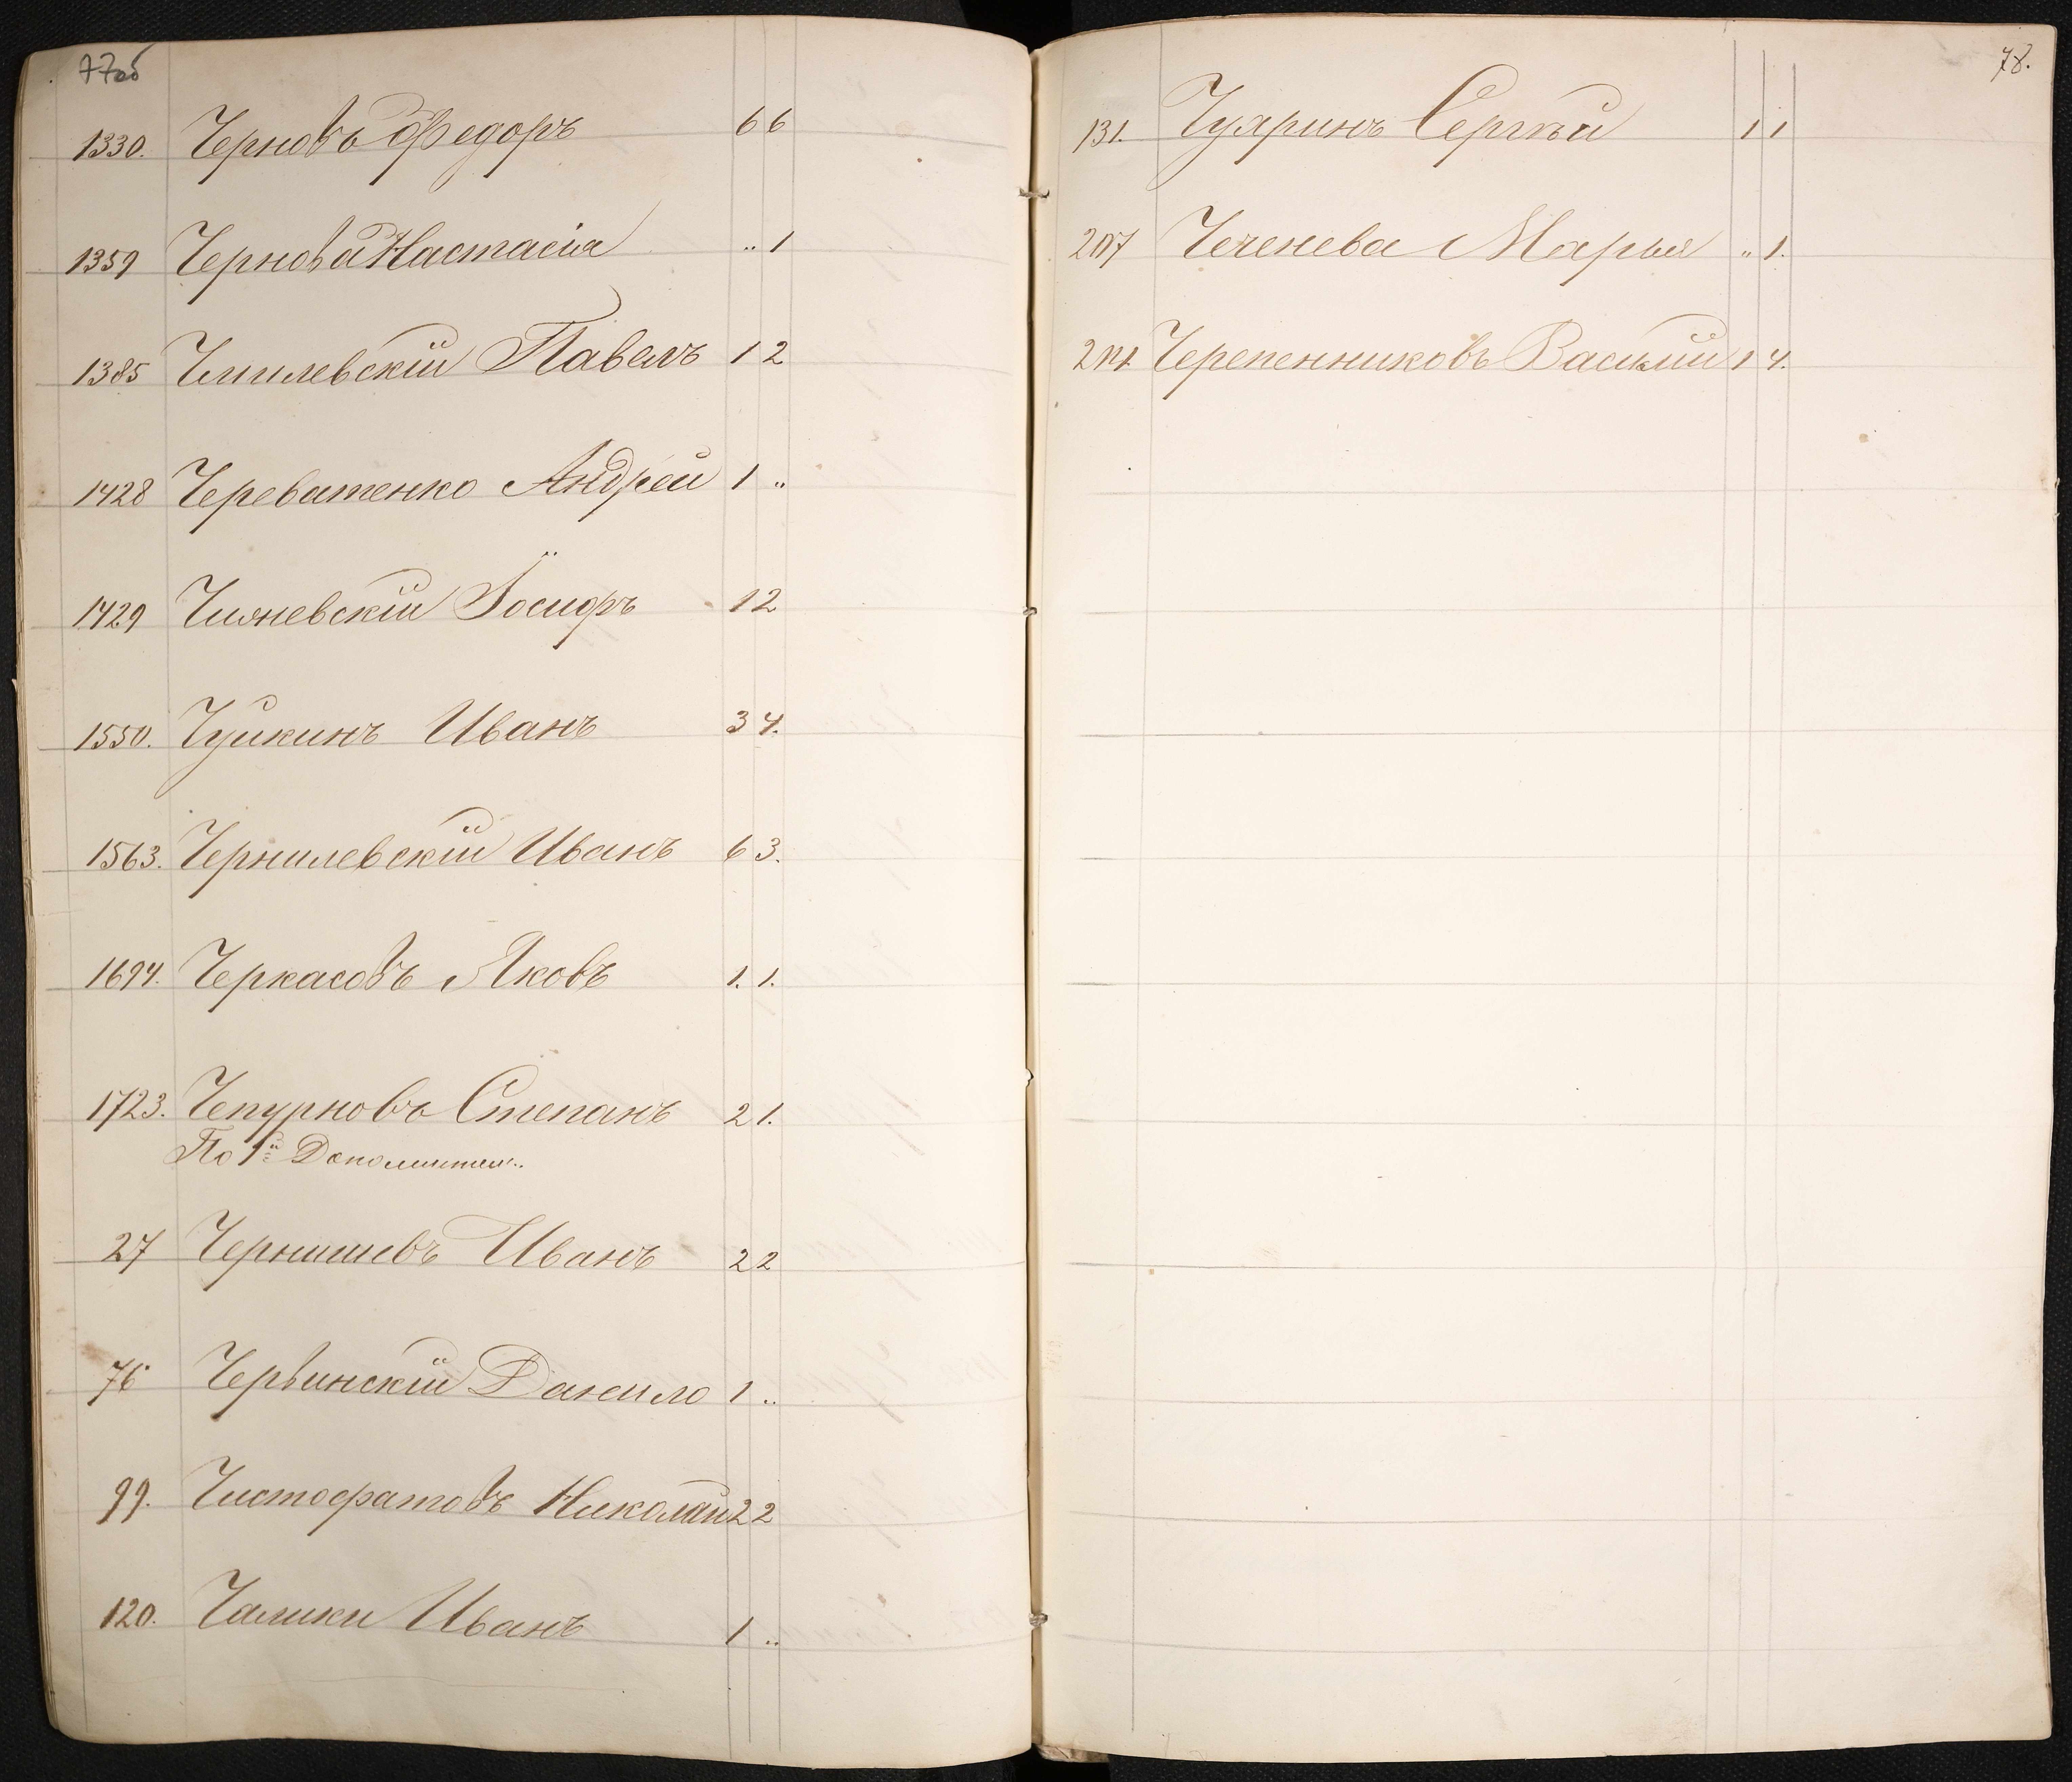 77об
1330. Черновъ Федоръ 6 6
1359 Чернова Настасія „ 1
1385 Чмилевскій Павелъ 1 2
1428 Череватенко Андрей 1 „
1429 Чижневскій Іосифъ 1 2
1550. Чуйкинъ Иванъ 3 4.
1563. Чернилевскій Иванъ 6 3.
1694. Черкасовъ Яковъ 1. 1.
1723. Чепурновъ Степанъ 2 1.
По 1й Дополнител.
27 Чернышевъ Иванъ 2 2
76 Червинскій Данило 1 „
99. Чистофатовъ Николай 2 2
120. Иванъ 1 „
78.
131. Чуяринъ Сергѣй 1 1
207 Чеченева Марья „ 1.
Черепенниковъ Василій 1 4.